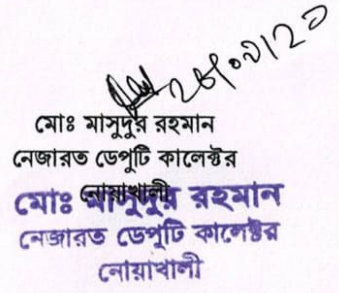 মোঃ মাসুদুর রহমান
নেজারত ডেপুটি কালেক্টর
নোয়াখালী
মোঃ মাসুদুর রহমান
নেজারত ডেপুটি কালেক্টর
নোয়াখালী